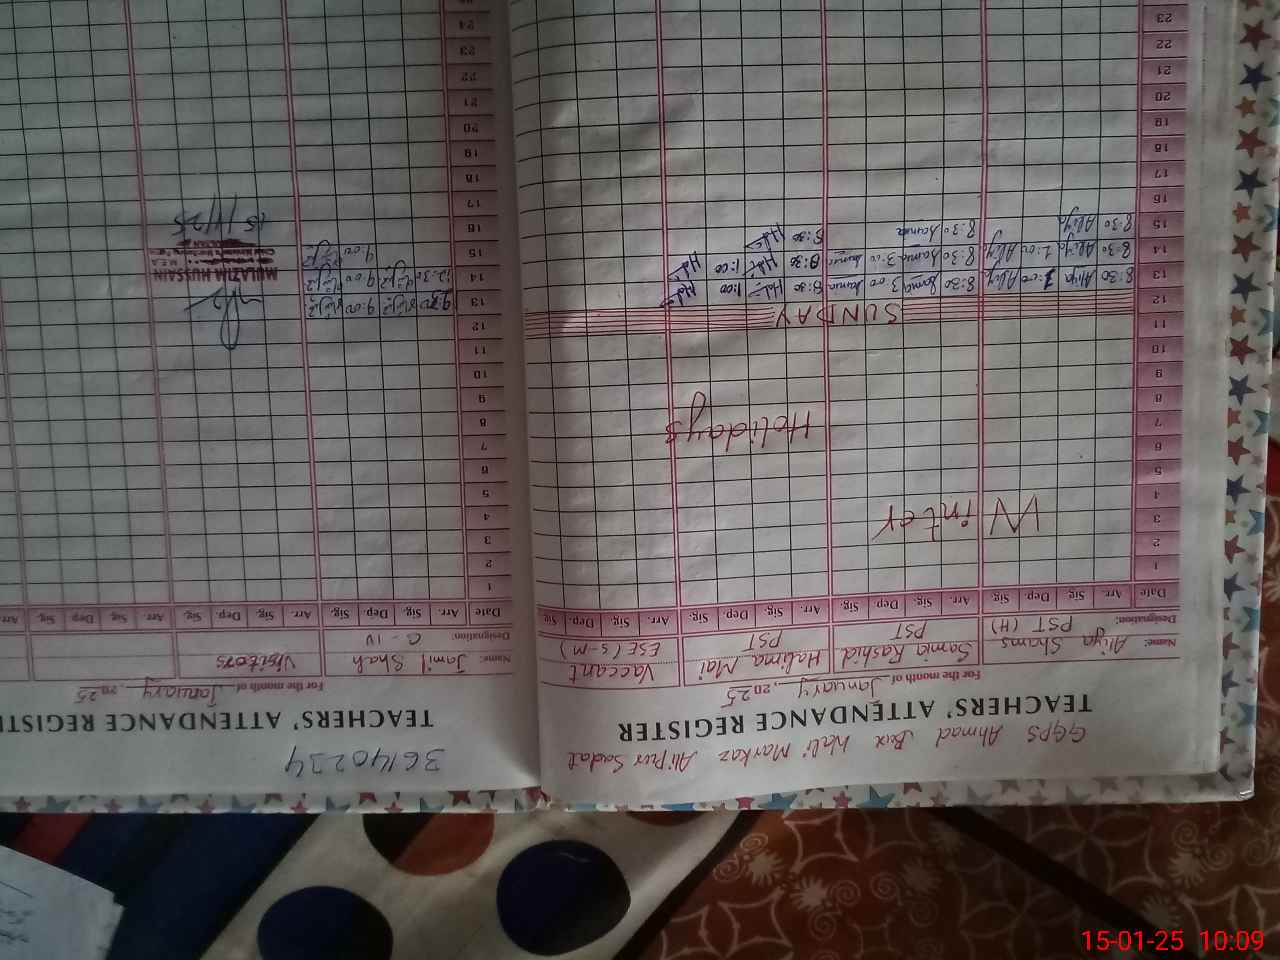 GGPS Ahmad Bux Wali Markaz Ali Pur Sadat
TEACHERS' ATTENDANCE REGISTER
For the month of January, 2025
Name: Aliya Shams Samia Rashid Halima Mai Vaccant
Designation: PST (H) PST PST ESE (S-M)
Date Arr. Sig. Dep. Sig. Arr. Sig. Dep. Sig. Arr. Sig. Dep. Sig. Arr. Sig. Dep. Sig.
1
2
3
4
Winter
5
6
7
Holidays
8
9
10
11
12 SUNDAY
13 8:30 Aliya 1:00 Aliy 8:30 Samia 3:00 Samia 8:30 1:00
14 8:30 Aliya 1:00 Aliy 8:30 Samia 3:00 Samia 8:30 1:00
15 8:30 Aliya 8:30 Samia 8:30
16
17
18
19
20
21
22
23
36140234
TEACHERS' ATTENDANCE REGISTE
For the month of January, 2025
Name: Jamil Shah Visitors
Designation: C-IV
Date Arr. Sig. Dep. Sig. Arr. Sig. Dep. Sig. Arr. Sig. Dep. Sig.
1
2
3
4
5
6
7
8
9
10
11
12
13 9:00
14 12:30 9:00
15 9:00
MULAZIM HUSSAIN
M.E.A
15/1/25
16
17
18
19
20
21
22
23
24
15-01-25 10:09